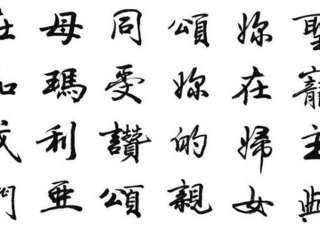 聖寵主與
妳在婦女
頌妳的親
同受讚頌
母瑪利亞